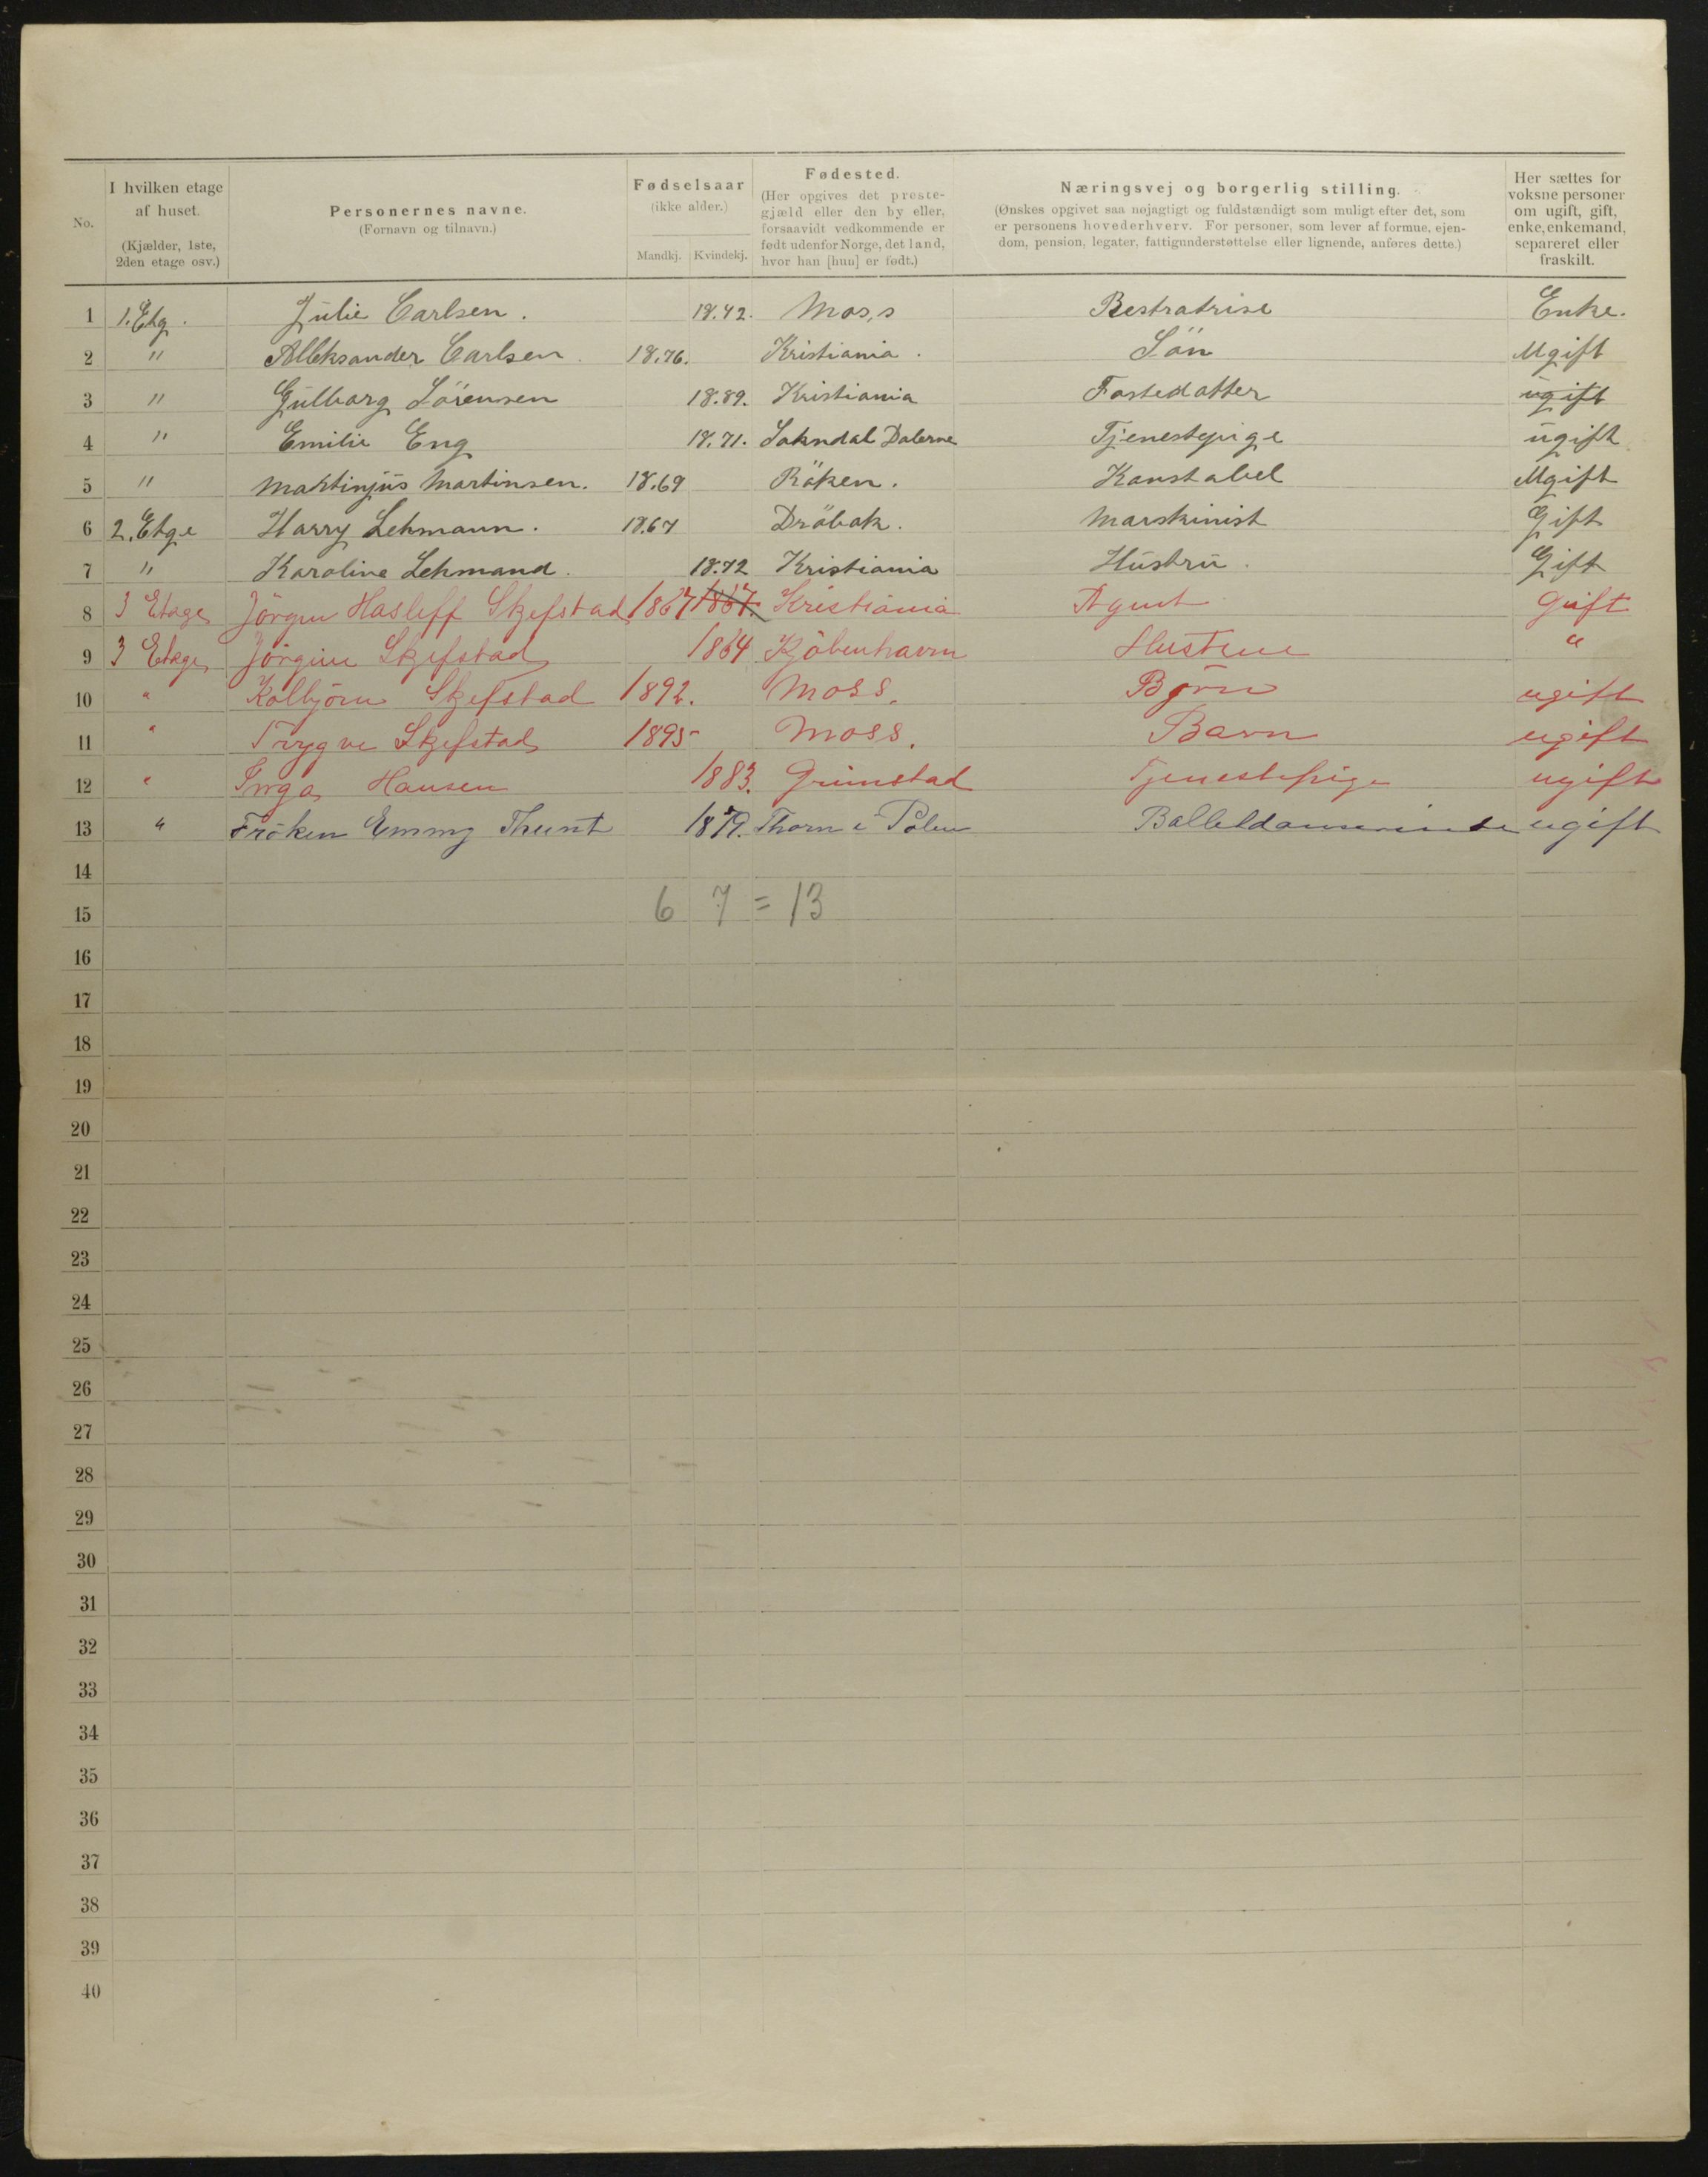 No. | I hvilken etage af huset. (Kjælder, 1ste, 2den etage osv.) | Personernes navne. (Fornavn og tilnavn.) | Fødselsaar (ikke alder.) Mandkj. Kvindekj. | Fødested. (Her opgives det prestegjæld eller den by eller, forsaavidt vedkommende er født udenfor Norge, det land, hvor han [hun] er født.) | Næringsvej og borgerlig stilling. (Ønskes opgivet saa nøjagtigt og fuldstændigt som muligt efter det, som er personens hovederhverv. For personer, som lever af formue, ejendom, pension, legater, fattigunderstøttelse eller lignende, anføres dette.) | Her sættes for voksne personer om ugift, gift, enke, enkemand, separeret eller fraskilt.
1 1. Etg. Julie Carlsen. 18.42. Mos,s Bestratrise Enke.
2 " Alleksander Carlsen. 18.76. Kristiania. Sön Ugift
3 " Gulborg Sörensen 18.89. Kristiania Fostedatter ugift
4 " Emilie Eng 18.71. Sokndal Dalerne Tjenestepige ugift
5 " Martinjus Martinsen. 18.69 Röken. Konstabel Ugift
6 2. Etge Harry Lehmann. 18.67 Dröbak. Marskinist Gift
7 " Karoline Lehmand. 18.72 Kristiania Hustru. Gift
8 3 Etage Jörgen Hasleff Skjefstad 1867 1867. Kristiania Agent Gift
9 3 Etage Jörgine Skjefstad 1864 Kjöbenhavn Hustrue "
10 " Kolbjörn Skjefstad 1892. Moss. Børn ugift
11 " Trygve Skjefstad 1895 Moss. Barn ugift
12 " Inga Hansen 1883. Grimstad Tjenestepige ugift
13 " Fröken Emmy Thunt 1879. Thorn i Polen Balletdanserinde ugift
14
15 6 7 = 13
16
17
18
19
20
21
22
23
24
25
26
27
28
29
30
31
32
33
34
35
36
37
38
39
40